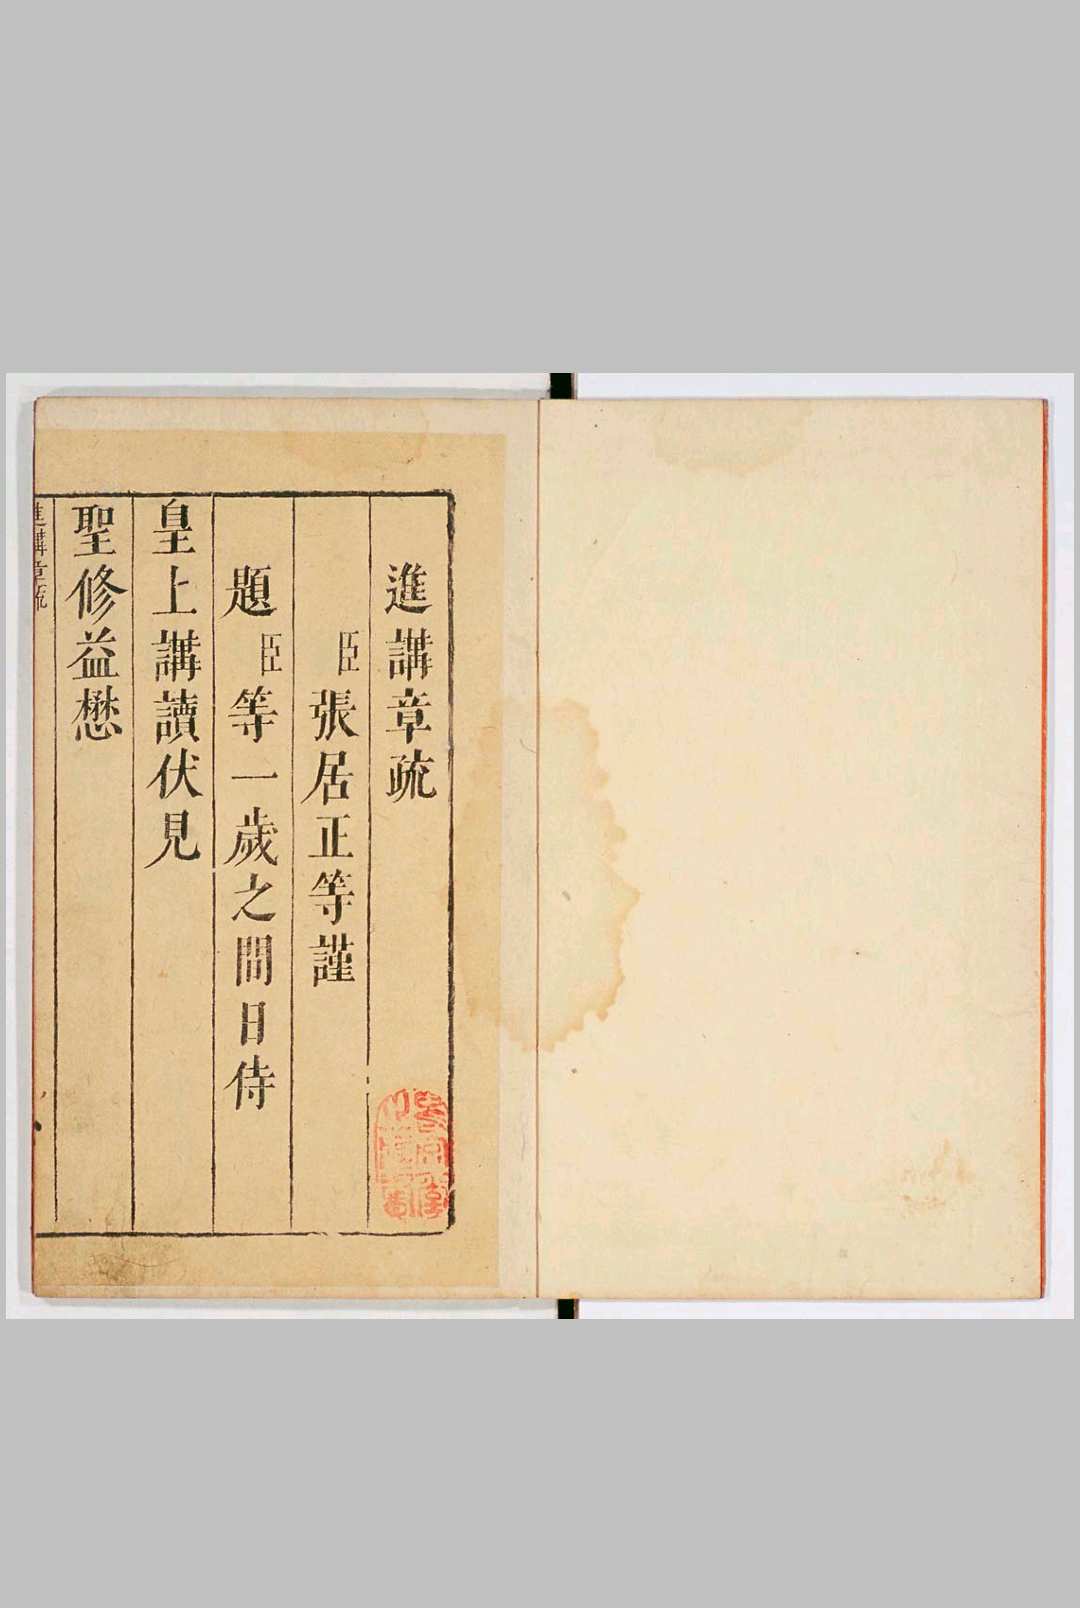 進講章疏
臣張居正等謹
題臣等一歲之間日侍
皇上講讀伏見
聖修益懋
進講章疏